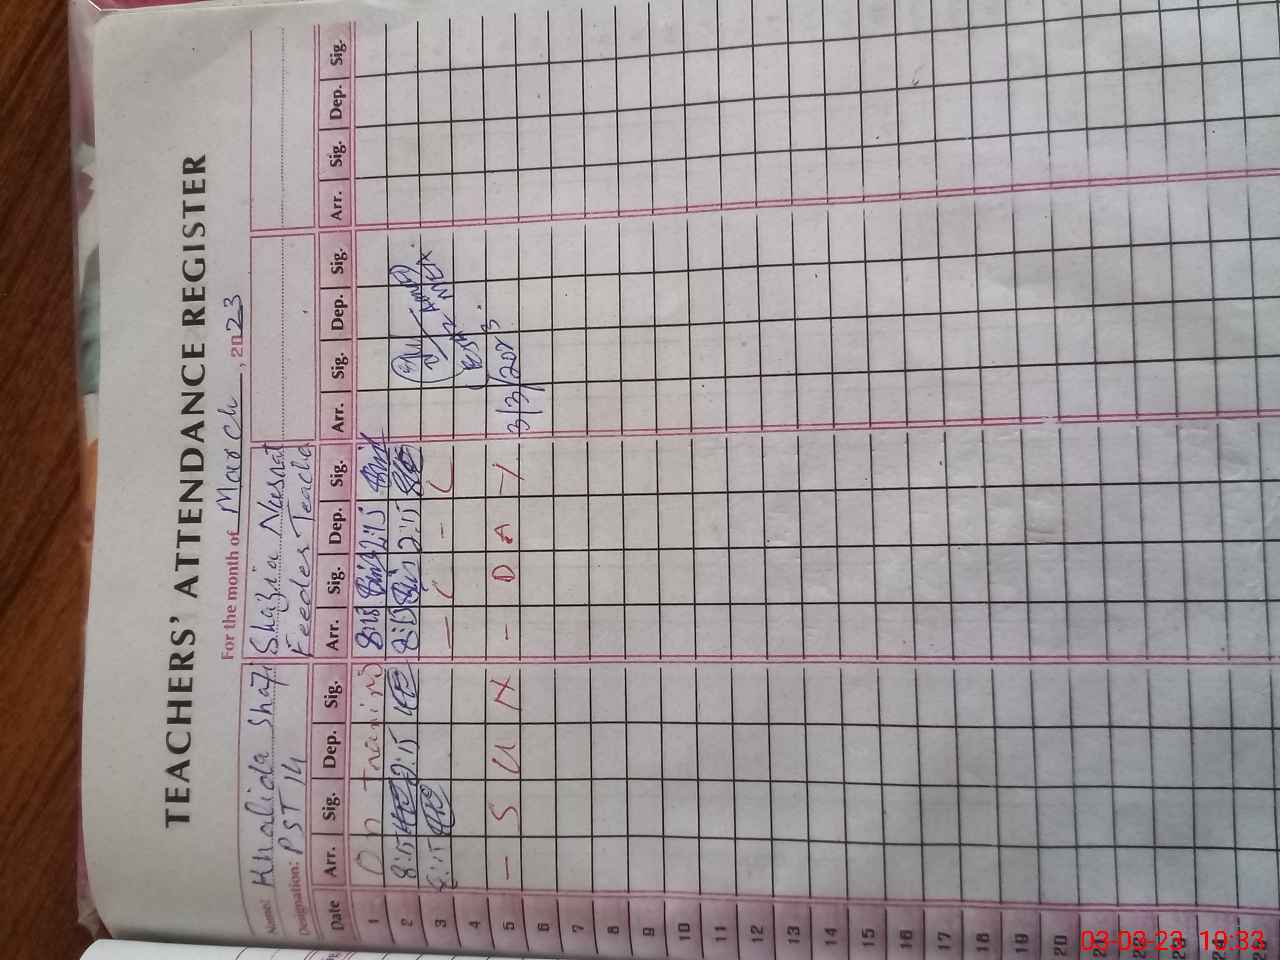 TEACHERS' ATTENDANCE REGISTER
For the month of March, 2023
Name: Khalida Shafi Shazia Nusrat
Designation: PST 14 Feeder Teacher
Date Arr. Sig. Dep. Sig. Arr. Sig. Dep. Sig. Arr. Sig. Dep. Sig. Arr. Sig. Dep. Sig.
1 On training 8:15 2:15
2 8:15 2:15 8:15 2:15
3 8:15 - -
4
5 - S U N - D A Y 3/3/2023
6
7
8
9
10
11
12
13
14
15
16
17
18
19
20
03-03-23 10:33